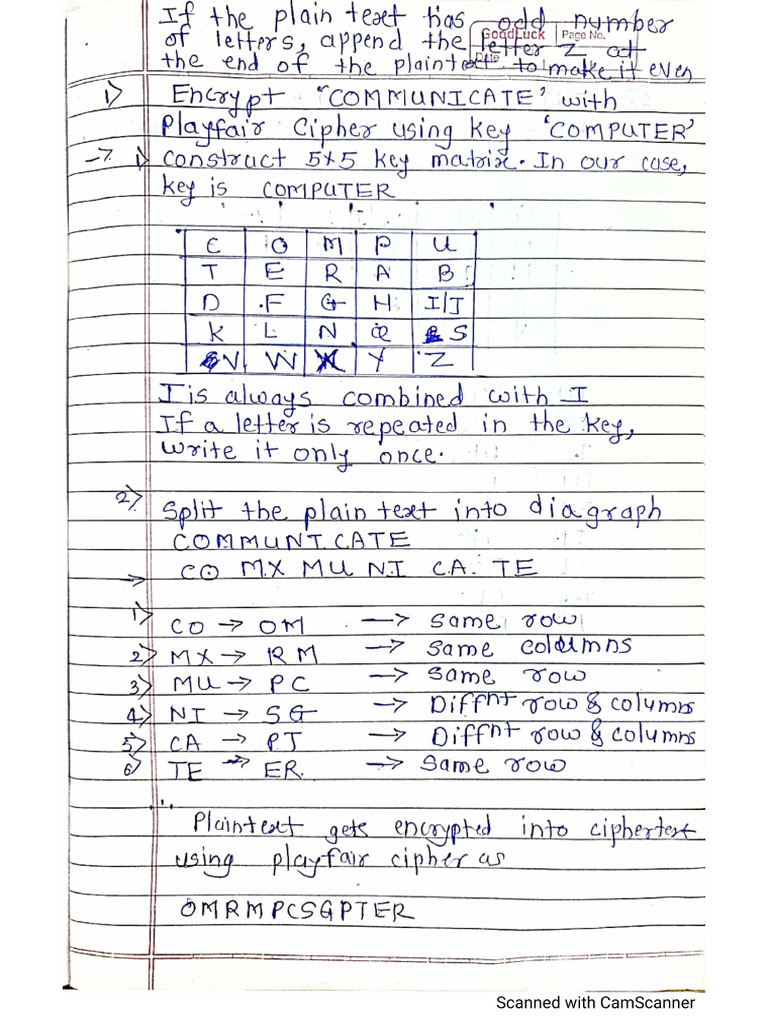 If the plain text has odd number
GoodLuck Page No.
of letters, append the letter Z at
Date
the end of the plaintext to make it even
1) Encrypt "COMMUNICATE' with
Playfair Cipher using key 'COMPUTER'
→ 1) construct 5x5 key matrix. In our case,
key is COMPUTER
C O M P U
T E R A B
D F G H I/J
K L N Q S
V W X Y Z
J is always combined with I
If a letter is repeated in the key,
write it only once.
2) Split the plain text into diagraph
COMMUNICATE
→ CO MX MU NI CA TE
1) CO → OM → Same row
2) MX → RM → Same columns
3) MU → PC → Same row
4) NI → SG → Diffnt row & columns
5) CA → PT → Diffnt row & columns
6) TE → ER. → Same row
Plaintext gets encrypted into ciphertext
using playfair cipher as
OMRMPCSGPTER
Scanned with CamScanner